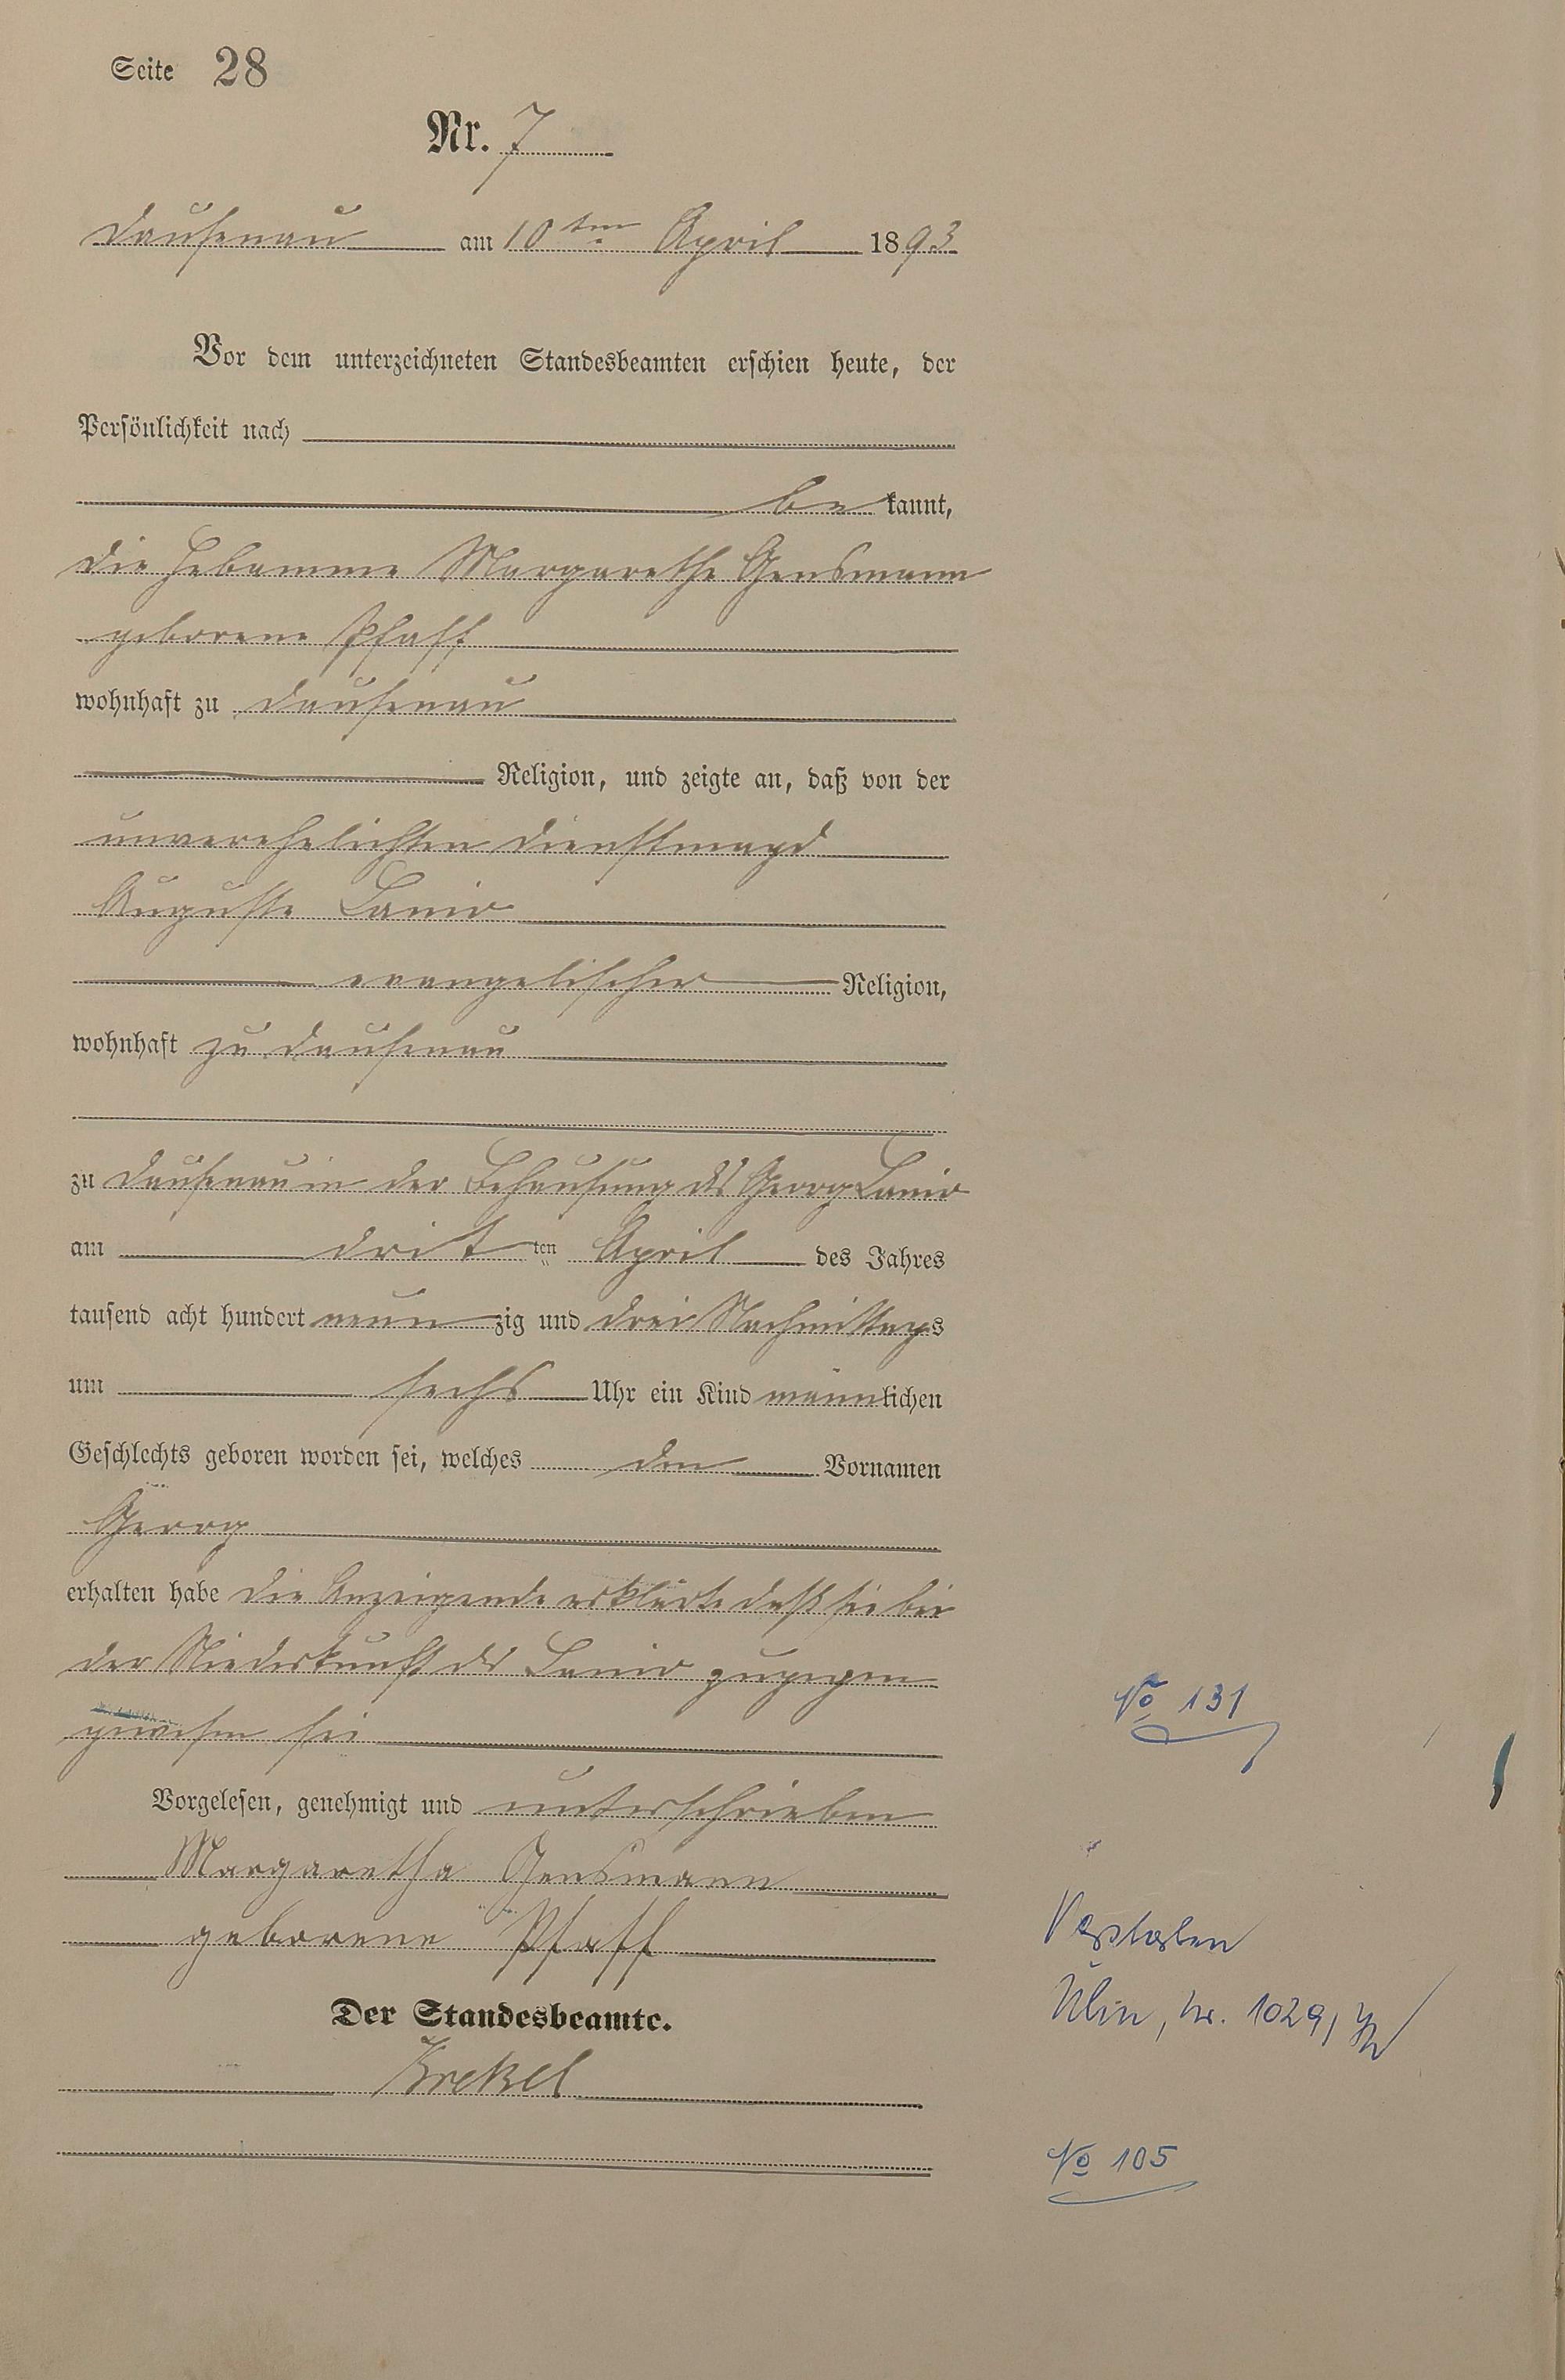 Seite 28
Nr. 7
Dausenau am 10ten April 1893
Vor dem unterzeichneten Standesbeamten erschien heute, der
Persönlichkeit nach
be kannt,
die Hebamme Margarethe Gensmann
geborene Pfaff
wohnhaft zu Dausenau
Religion, und zeigte an, daß von der
unverehelichten Dienstmagd
Auguste Lanio
evangelischer Religion,
wohnhaft zu Dausenau
zu Dausenau in der Behausung des Georg Lanio
am drit ten April des Jahres
tausend acht hundert neun zig und drei Nachmittags
um sechs Uhr ein Kind männlichen
Geschlechts geboren worden sei, welches den Vornamen
Georg
erhalten habe die Anzeigende erklärte daß sie bei
der Niederkunft der Lanio zugegen
gewesen sei
Vorgelesen, genehmigt und unterschrieben
Margaretha Gensmann
geborene Pfaff
Der Standesbeamte.
Krekel
No 131
No 105